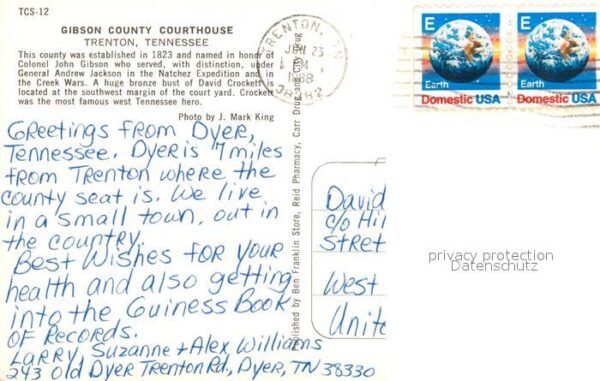 TCS-12
GIBSON COUNTY COURTHOUSE
TRENTON, TENNESSEE
This county was established in 1823 and named in honor of
Colonel John Gibson who served, with distinction, under
General Andrew Jackson in the Natchez Expedition and in
the Creek Wars. A huge bronze bust of David Crockett is
located at the southwest margin of the court yard. Crockett
was the most famous west Tennessee hero.
Photo by J. Mark King
Greetings from Dyer,
Tennessee. Dyer is 7 miles
from Trenton where the
county seat is. We live
in a small town, out in
the country.
Best Wishes for your
health and also getting
into the Guiness Book
of Records.
Larry, Suzanne + Alex Williams
243 Old Dyer Trenton Rd., Dyer, TN 38330
Published by Ben Franklin Store, Reid Pharmacy, Carr Drug and City Drug
TRENTON, TN
JUN 23
PM
1988
38382
E
Earth
Domestic USA
E
Earth
Domestic USA
David
c/o Hil
Street
West
Unite
privacy protection
Datenschutz